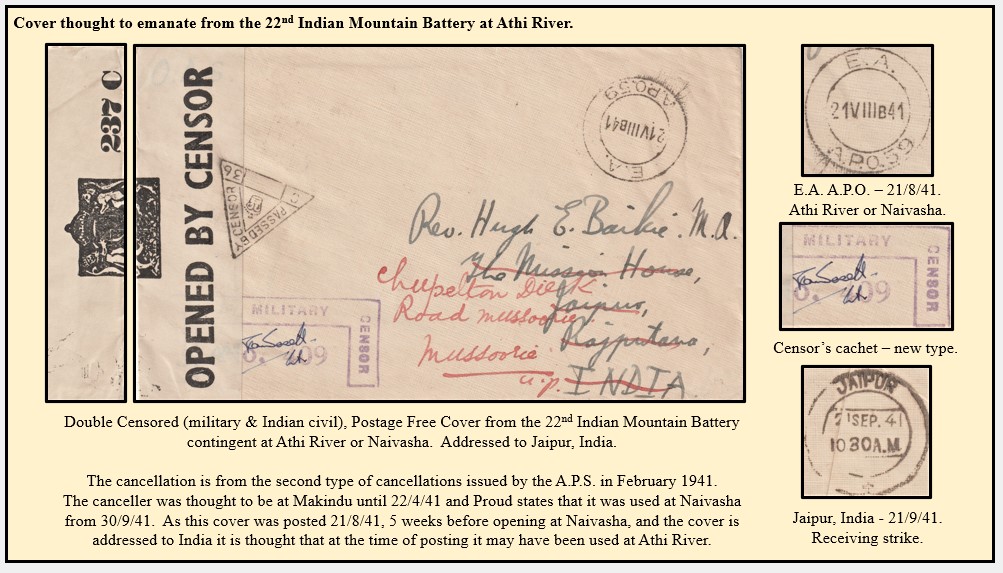 Cover thought to emanate from the 22nd Indian Mountain Battery at Athi River.
237 C
OPENED BY CENSOR
PASSED BY CENSOR
C
36
E.A.
21VIIIB41
A.P.O.59
Rev. Hugh E. Baikie. M.A.
The Mission House,
Jaipur,
Rajputana,
INDIA
Road Mussoorie
Mussoorie.
U.P.
MILITARY
CENSOR
09
E.A.
21VIIIB41
A.P.O.59
E.A. A.P.O. – 21/8/41.
Athi River or Naivasha.
MILITARY
CENSOR
09
Censor’s cachet – new type.
JAIPUR
21SEP.41
1030A.M
Jaipur, India - 21/9/41.
Receiving strike.
Double Censored (military & Indian civil), Postage Free Cover from the 22nd Indian Mountain Battery
contingent at Athi River or Naivasha. Addressed to Jaipur, India.
The cancellation is from the second type of cancellations issued by the A.P.S. in February 1941.
The canceller was thought to be at Makindu until 22/4/41 and Proud states that it was used at Naivasha
from 30/9/41. As this cover was posted 21/8/41, 5 weeks before opening at Naivasha, and the cover is
addressed to India it is thought that at the time of posting it may have been used at Athi River.